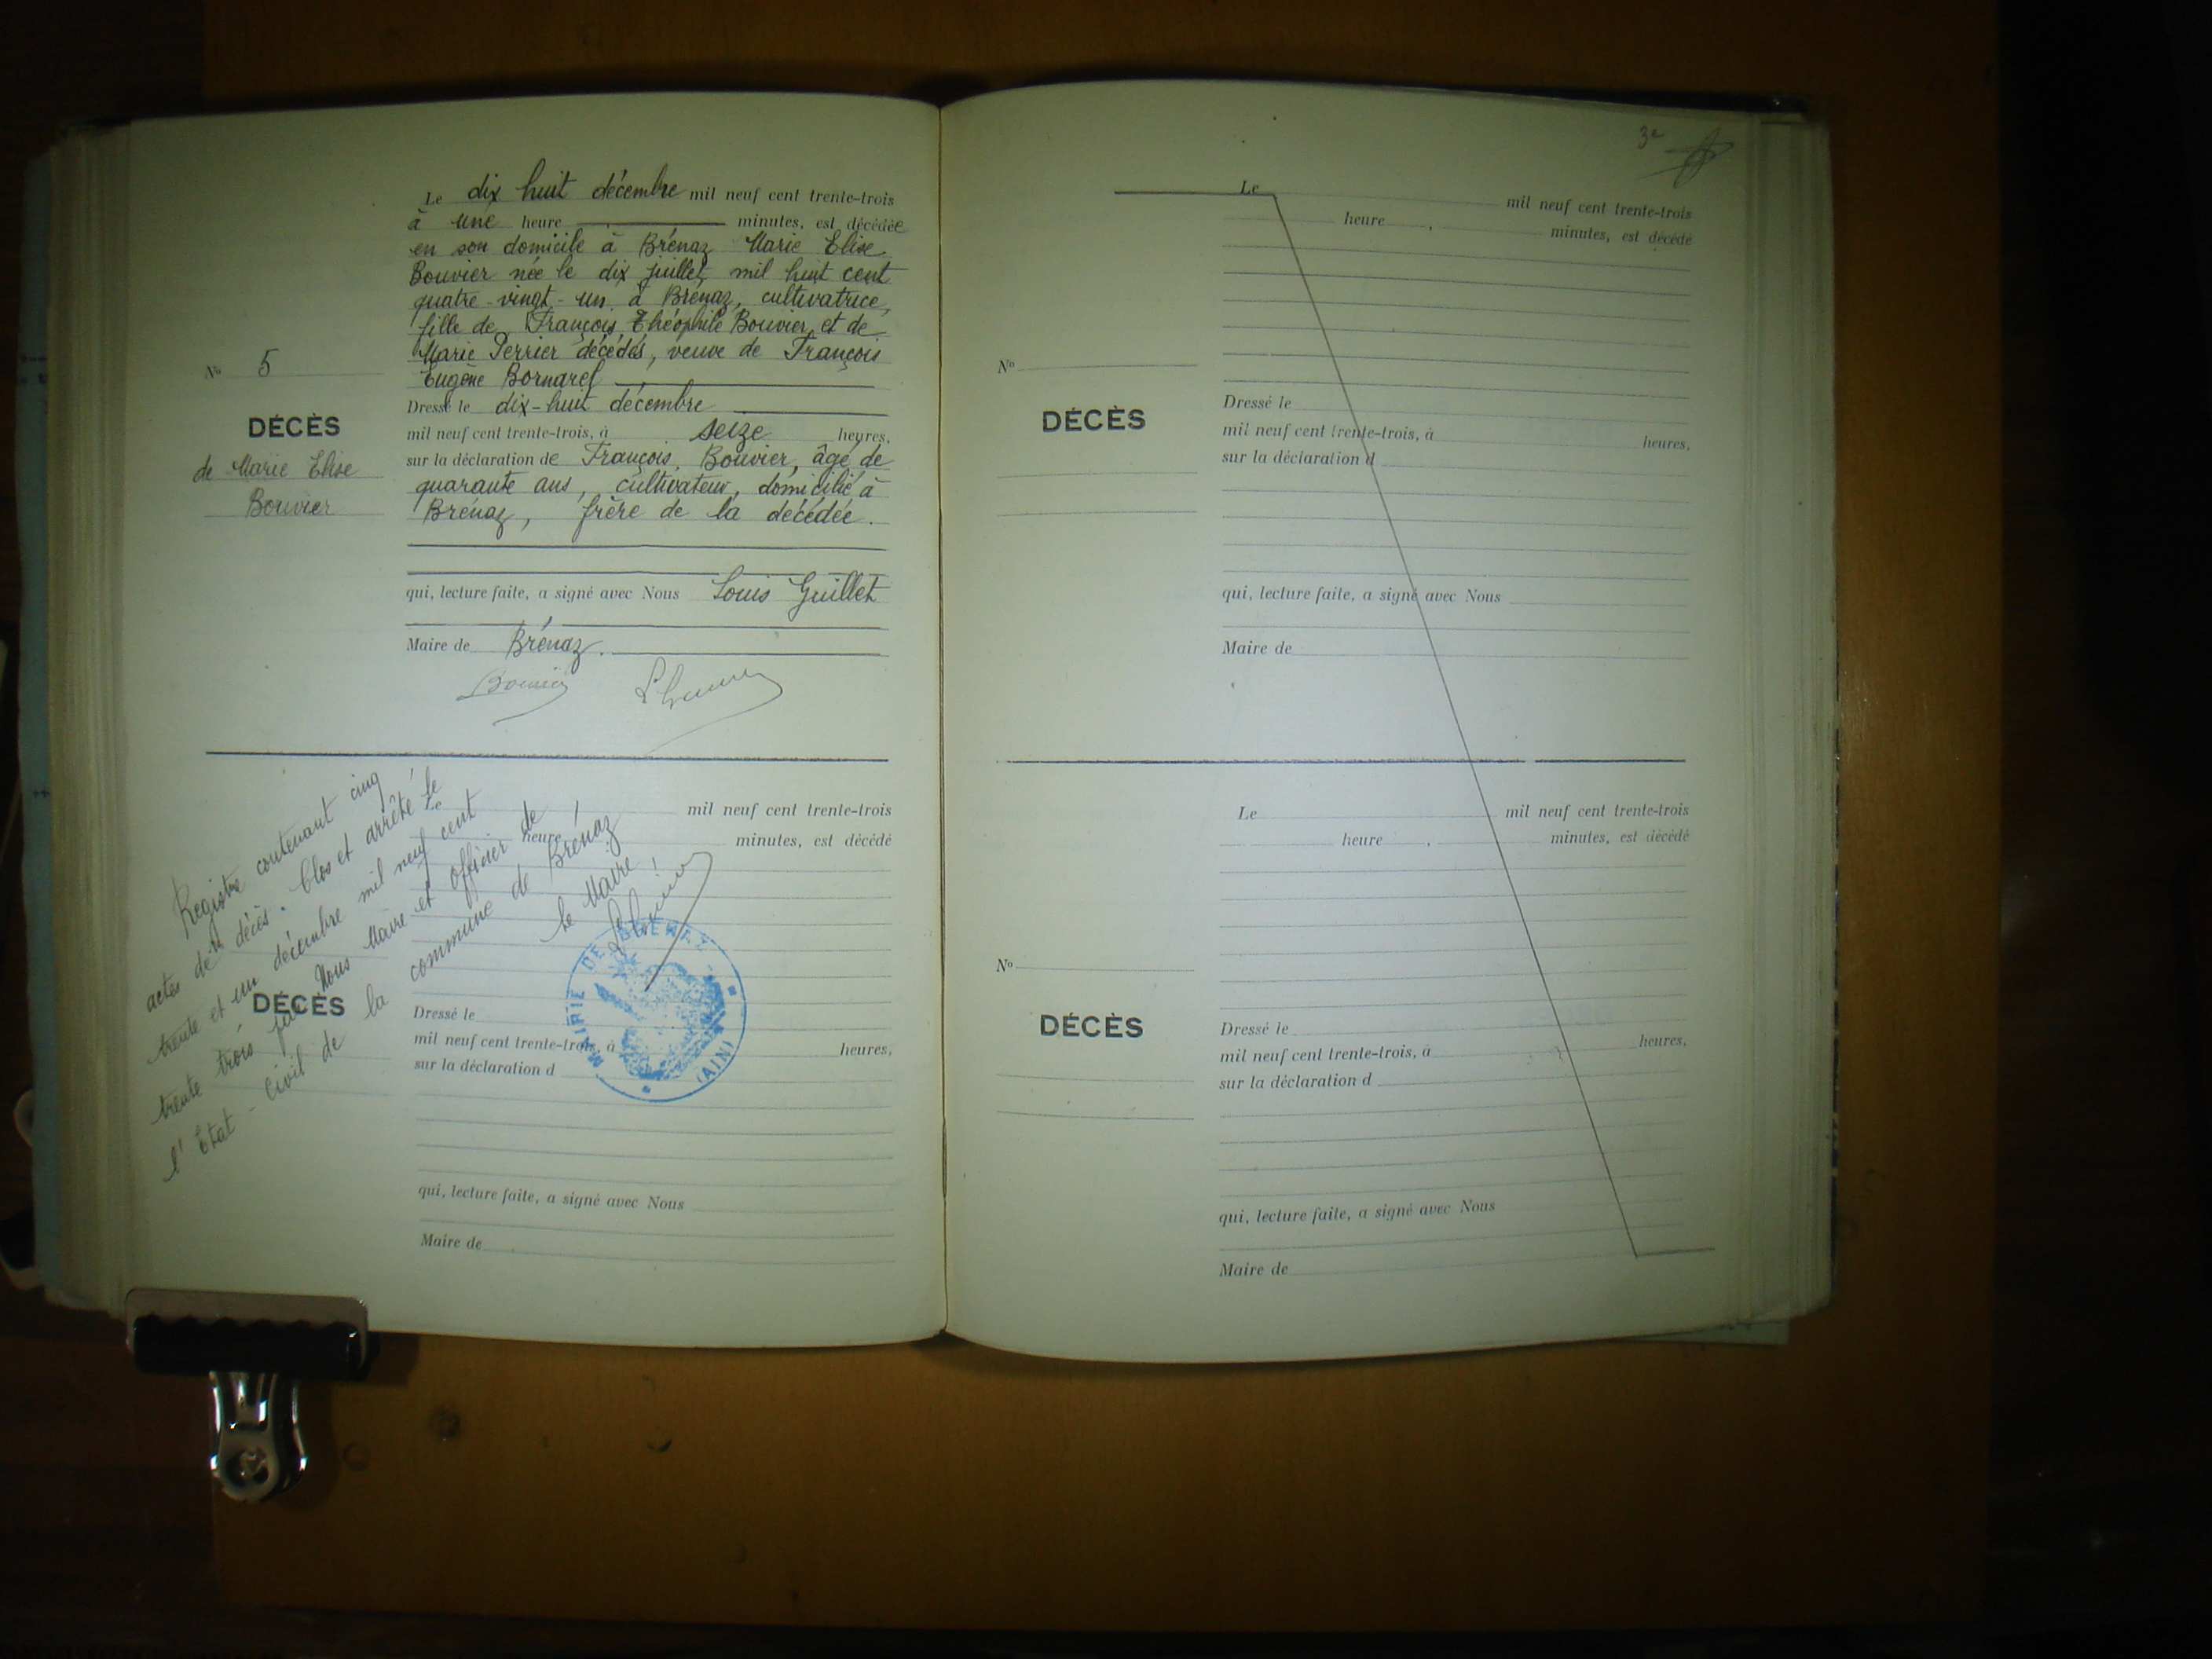 Le dix huit décembre mil neuf cent trente-trois
à une heure minutes, est décédée
en son domicile à Brénaz Marie Elise
Bouvier née le dix juillet mil huit cent
quatre-vingt-un à Brénaz, cultivatrice,
fille de François Théophile Bouvier et de
Marie Perrier décédés, veuve de François
Eugène Bornaref
Dressé le dix-huit décembre
mil neuf cent trente-trois, à seize heures,
sur la déclaration de François Bouvier, âgé de
quarante ans, cultivateur, domicilié à
Brénaz, frère de la décédée.
qui, lecture faite, a signé avec Nous Louis Guillet
Maire de Brénaz.
Bouvier
No 5
DÉCÈS
de Marie Elise
Bouvier
Registre contenant cinq
actes de décès. Clos et arrêté le
trente et un décembre mil neuf cent
trente trois par Nous Maire et officier de
l'Etat-Civil de la commune de Brénaz
Le Maire
MAIRIE DE BRENAZ
(AIN)
Le mil neuf cent trente-trois
heure minutes, est décédé
DÉCÈS
Dressé le
mil neuf cent trente-trois, à heures,
sur la déclaration d
qui, lecture faite, a signé avec Nous
Maire de
3e
Le mil neuf cent trente-trois
heure minutes, est décédé
No
DÉCÈS
Dressé le
mil neuf cent trente-trois, à heures,
sur la déclaration d
qui, lecture faite, a signé avec Nous
Maire de
Le mil neuf cent trente-trois
heure minutes, est décédé
No
DÉCÈS
Dressé le
mil neuf cent trente-trois, à heures,
sur la déclaration d
qui, lecture faite, a signé avec Nous
Maire de